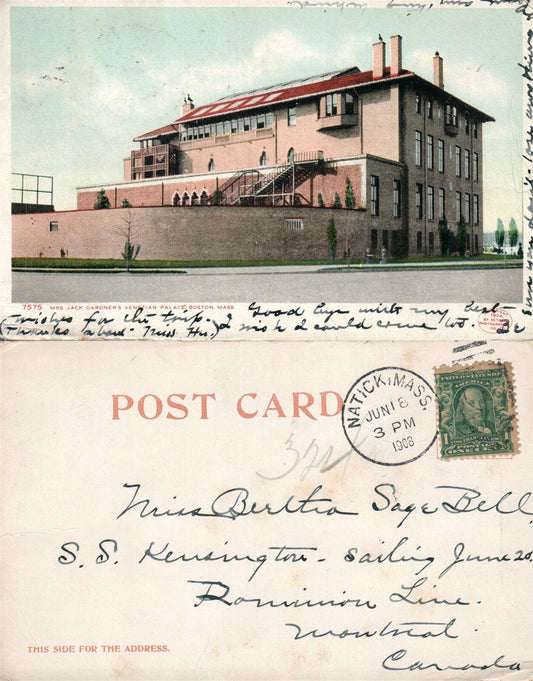 7575. MRS JACK GARDNER'S VENETIAN PALACE, BOSTON, MASS.
Good bye with my best
wishes for the trip. I wish I could come too. Be
(Thanks about Miss Hu.)
sure you don't lose anything
POST CARD
NATICK, MASS.
JUN 18
3 PM
1908
UNITED STATES OF AMERICA
POSTAGE
ONE CENT
Miss Bertha Sage Bell
S. S. Kensington - sailing June 20
Dominion Line.
Montreal
Canada
THIS SIDE FOR THE ADDRESS.